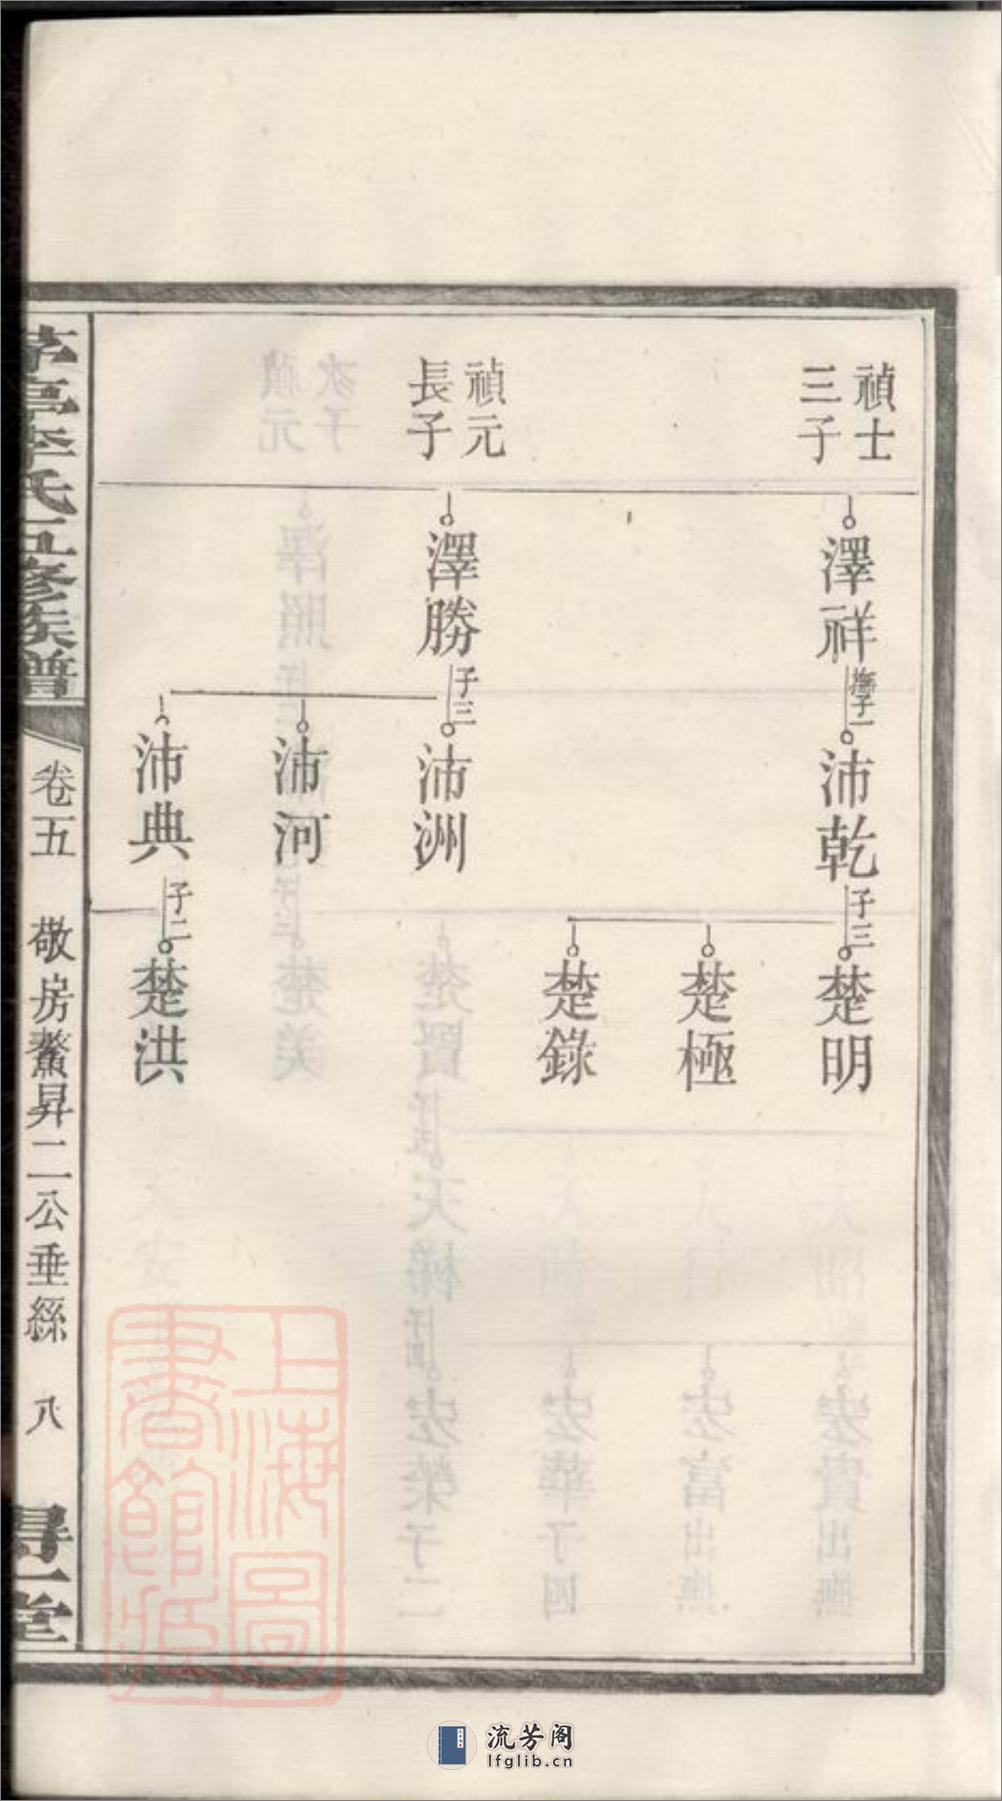 禎士
三子
澤祥
撫子一
沛乾
子三
楚明
楚極
楚錄
禎元
長子
澤勝
子三
沛洲
沛河
沛典
子二
楚洪
李氏五修族譜
卷五
敬房鰲昇二公垂絲
八
上海圖
書館藏
流芳阁
lfglib.cn